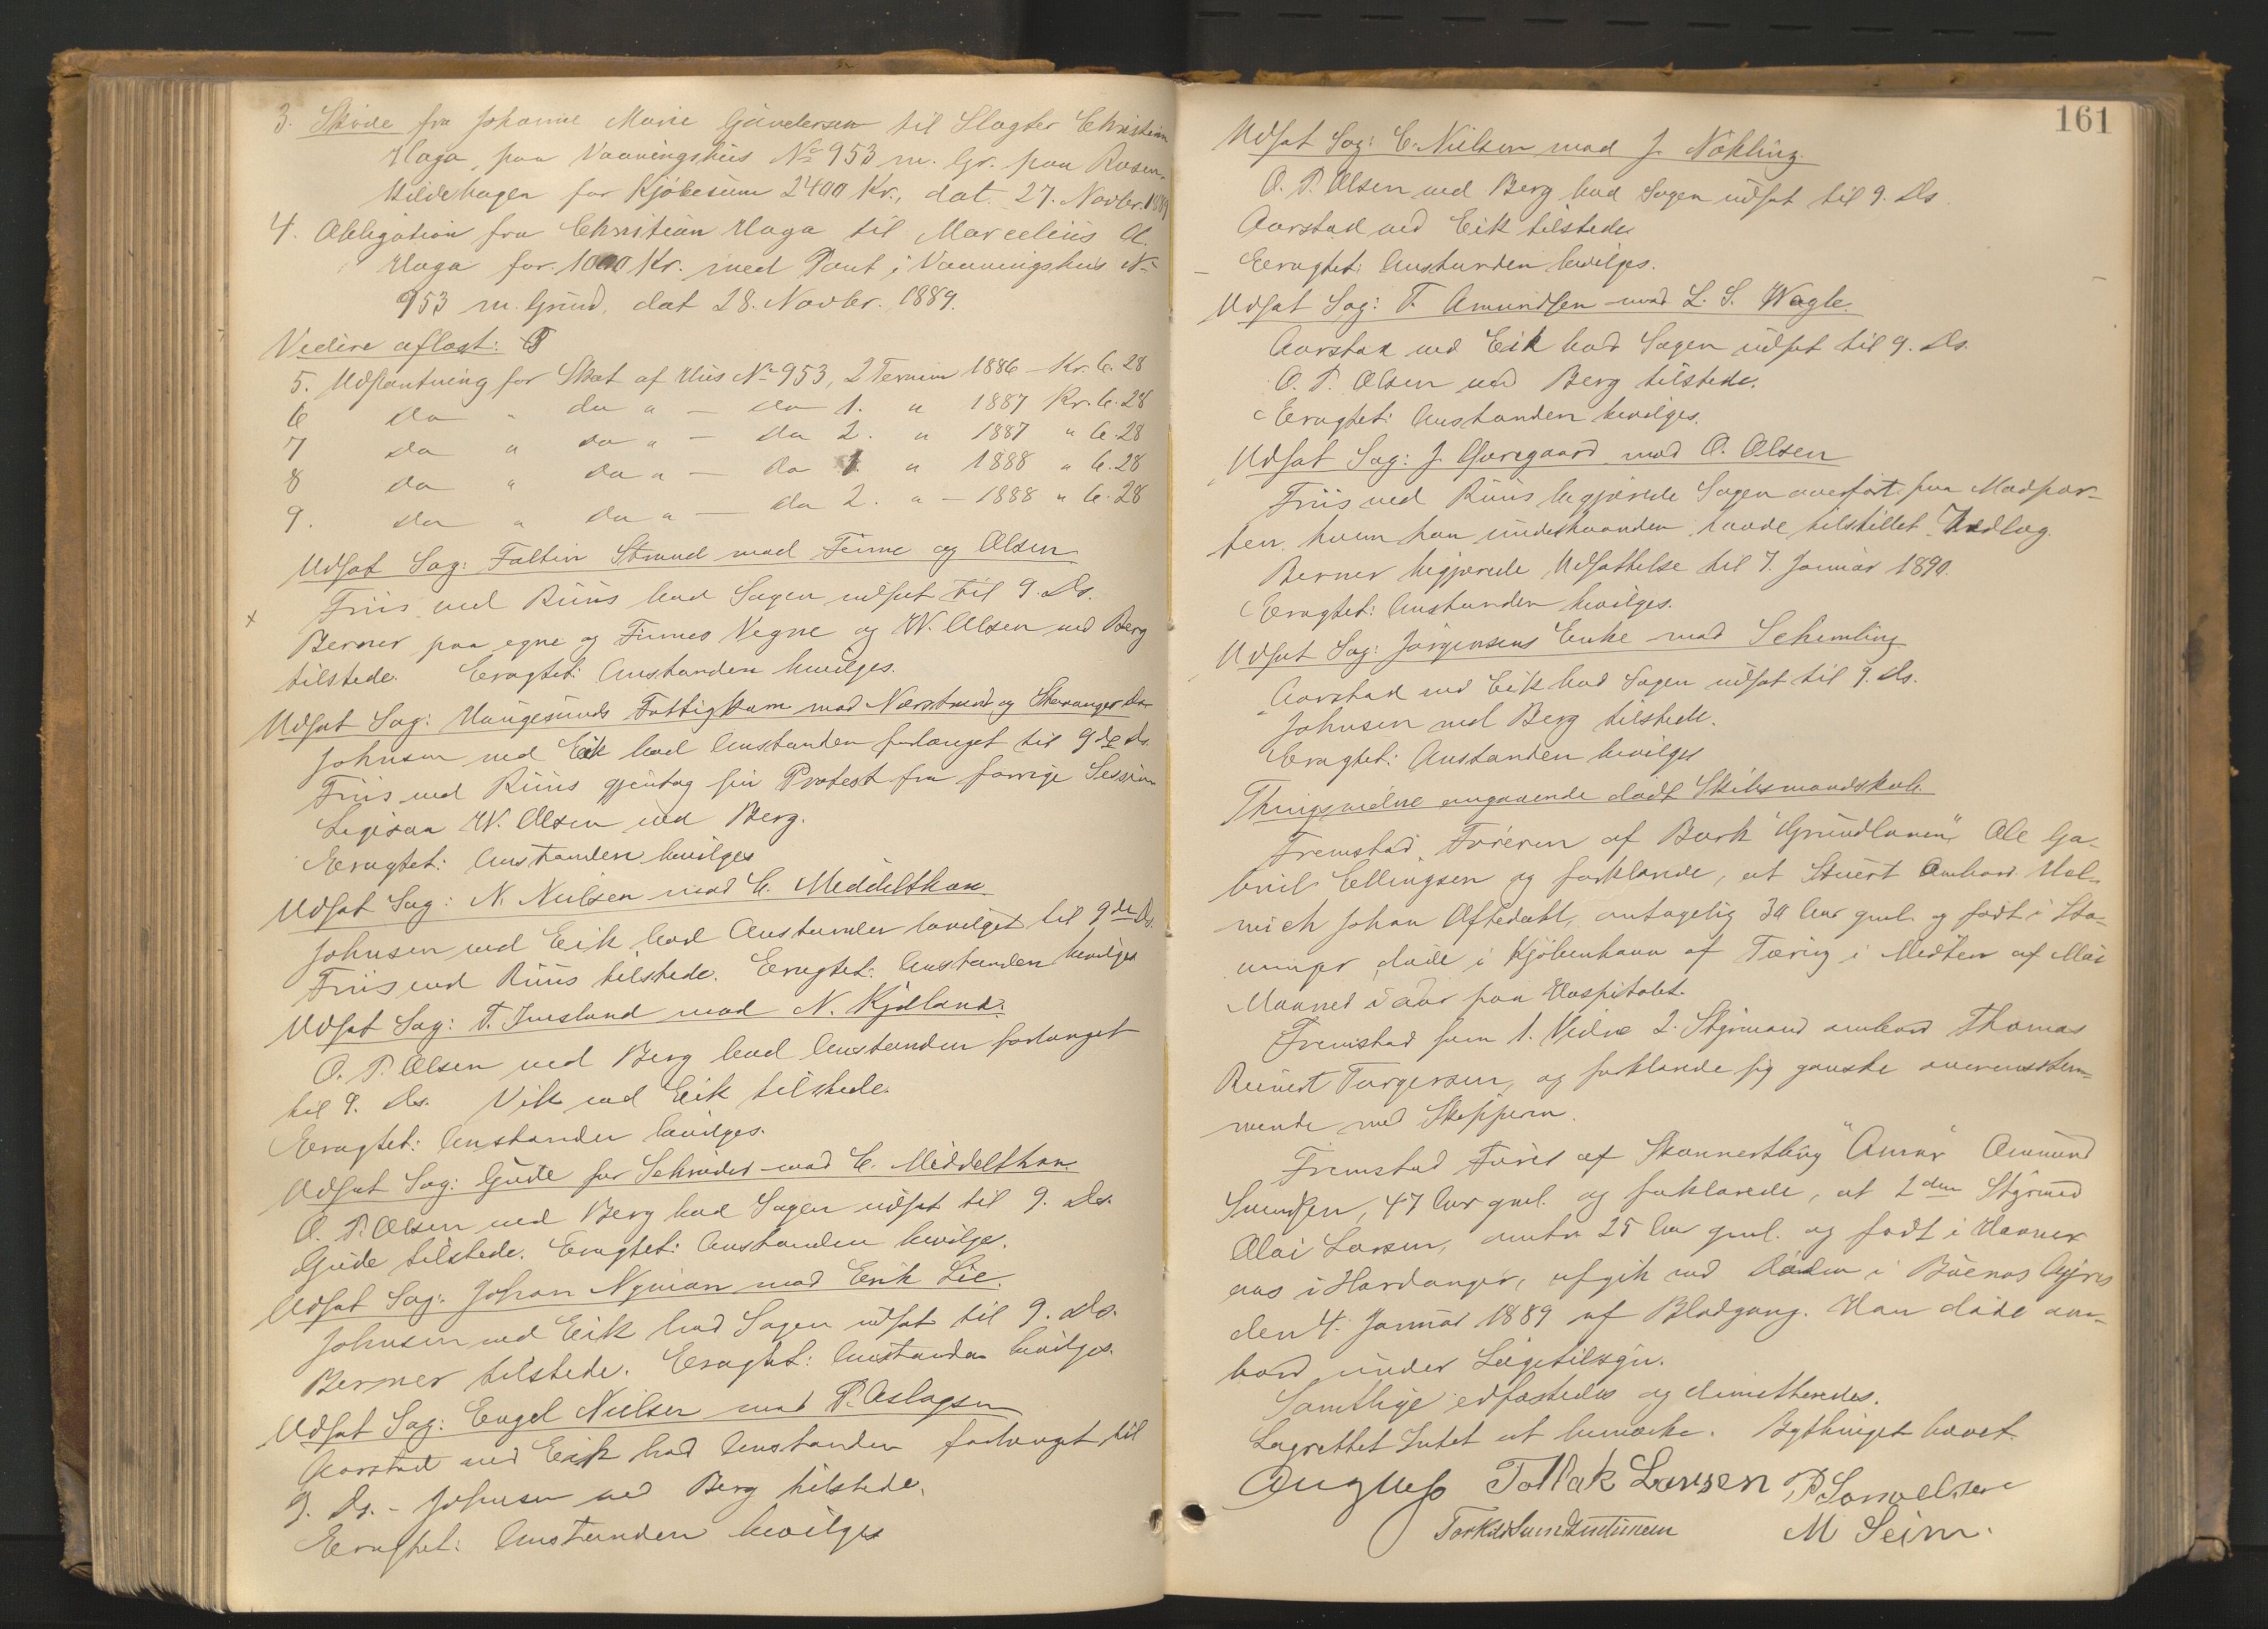 3. Skjøde fra Johanne Marie Gundersen til Slagter Christian
Haga, paa Vaaningshus No 953 m. Gr. paa Rosen-
kildehagen for Kjøbesum 2400 Kr., dat. 27. Novbr. 1889
4. Obligation fra Christian Haga til Marcelius A.
Haga for 1000 Kr. med Pant i Vaaningshus No
953 m. Grund, dat 28. Novbr. 1889.
Videre aflæst:
5. Udpantning for Skat af Hus No 953, 2 Termin 1886 – Kr. 6.28
6 do " do " – do 1. " 1887 Kr. 6.28
7 do " do " – do 2. " 1887 " 6.28
8 do " do " – do 1. " 1888 " 6.28
9. do " do " – do 2. " – 1888 " 6.28
Udsat Sag: Faltin Strand mod Finne og Olsen
Friis ved Riis bad Sagen udsat til 9. Ds.
Berner paa egne og Finnes Vegne og W. Olsen ved Berg
tilstede. Eragtet: Anstanden bevilges.
Udsat Sag: Haugesunds Fattigkom mod Nærstrand og Stavanger do
Johnsen ved Eik bad Anstanden forlænget til 9de ds.
Friis ved Riis gjentog sin Protest fra forrige Session
Ligesaa W. Olsen ved Berg.
Eragtet: Anstanden bevilges
Udsat Sag: N. Nielsen mod C. Middelthon
Johnsen ved Eik bad Anstanden bevilget til 9de Ds.
Friis ved Riis tilstede. Eragtet: Anstanden bevilges
Udsat Sag: T. Imsland mod N. Kjølland.
O. P. Olsen ved Berg bad Anstanden forlænget
til 9. Ds. Vik ved Eik tilstede.
Eragtet: Anstanden bevilges.
Udsat Sag: Gude for Schrøder mod C. Middelthon
O. P. Olsen ved Berg bad Sagen udsat til 9. Ds.
Gude tilstede. Eragtet: Anstanden bevilges.
Udsat Sag: Johan Nyman mod Erik Lie.
Johnsen ved Eik bad Sagen udsat til 9. Ds.
Berner tilstede. Eragtet: Anstanden bevilges.
Udsat Sag: Engel Nielsen mod P. Aslagsen
Aarstad ved Eik bad Anstanden forlænget til
9. Ds. – Johnsen ved Berg tilstede.
Eragtet: Anstanden bevilges
161
Udsat Sag: C. Nielsen mod J. Nøkling.
O. P. Olsen ved Berg bad Sagen udsat til 9. Ds
Aarstad ved Eik tilstede
Eragtet: Anstanden bevilges.
Udsat Sag: T. Amundsen mod L. S. Wagle.
Aarstad ved Eik bad Sagen udsat til 9. Ds.
O. P. Olsen ved Berg tilstede.
Eragtet: Anstanden bevilges.
Udsat Sag: J. mod O. Olsen
Friis ved Riis begjærede Sagen overført paa Modpar-
ten, hvem han underhaanden havde tilstillet Indlæg.
Berner begjærede Udsættelse til 7. Januar 1890.
Eragtet: Anstanden bevilges.
Udsat Sag: Jørgensens Enke mod Schemling
Aarstad ved Eik bad Sagen udsat til 9. Ds.
Johnsen ved Berg tilstede.
Eragtet: Anstanden bevilges
Thingsvidne angaaende dødt Skibsmandskab
Fremstod Føreren af Bark "Grundloven" Ole Ga-
briel Ellingsen og forklarede, at Stuert ombord Hel-
mich Johan Aftedahl, antagelig 30 Aar gml. og født i Sta-
vanger, døde i Kjøbenhavn af Tæring i Midten af Mai
Maaned i Aar paa Hospitalet.
Fremstod som 1. Vidne 2. Styrmand ombord Thomas
Reinert Torgersen, og forklarede sig ganske overensstem-
mende med Skipperen.
Fremstod Fører af Skonnertbrig "Amor" Amund
47 Aar gml. og forklarede, at 2den Styrmd
Olai Larsen, omtr. 25 Aar gml. og født i
aas i Hardanger, afgik ved Døden i Buenos Ayres
den 4. Januar 1889 af Blodgang. Han døde om-
bord under Lægetilsyn.
Samtlige edfæstedes og dimitteredes.
Lagrettet Intet at bemærke. Bythinget hævet.
Aug Ueß Tollak Larsen P. Samuelsen
M Seim.